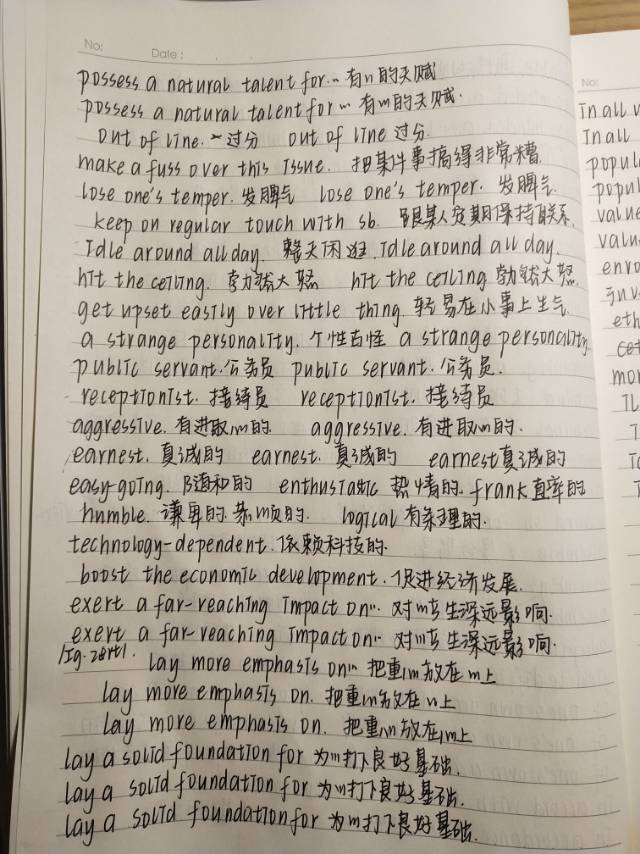 No:
Date:
possess a natural talent for… 有…的天赋
possess a natural talent for … 有…的天赋.
out of line. 过分 out of line 过分.
make a fuss over this issue. 把某件事搞得非常糟
lose one's temper. 发脾气 lose one's temper. 发脾气.
keep on regular touch with sb. 跟某人定期保持联系.
Idle around all day. 整天闲逛. Idle around all day.
hit the ceiling. 勃然大怒 hit the ceiling 勃然大怒.
get upset easily over little thing. 轻易在小事上生气
a strange personality. 个性古怪 a strange personality.
public servant. 公务员 public servant. 公务员.
receptionist. 接待员 receptionist. 接待员
aggressive. 有进取心的 aggressive. 有进取心的.
earnest. 真诚的 earnest. 真诚的 earnest 真诚的
easy-going. 随和的 enthusiastic 热情的. frank 直率的
humble. 谦卑的. 恭顺的. logical 有条理的.
technology-dependent. 依赖科技的.
boost the economic development. 促进经济发展.
exert a far-reaching impact on… 对…产生深远影响.
exert a far-reaching impact on… 对…产生深远影响.
lay more emphasis on… 把重心放在…上
lay more emphasis on. 把重心放在…上
lay more emphasis on. 把重心放在…上
lay a solid foundation for 为…打下良好基础.
lay a solid foundation for 为…打下良好基础.
lay a solid foundation for 为…打下良好基础.
No:
In all
In all
popul
popul
value
valu